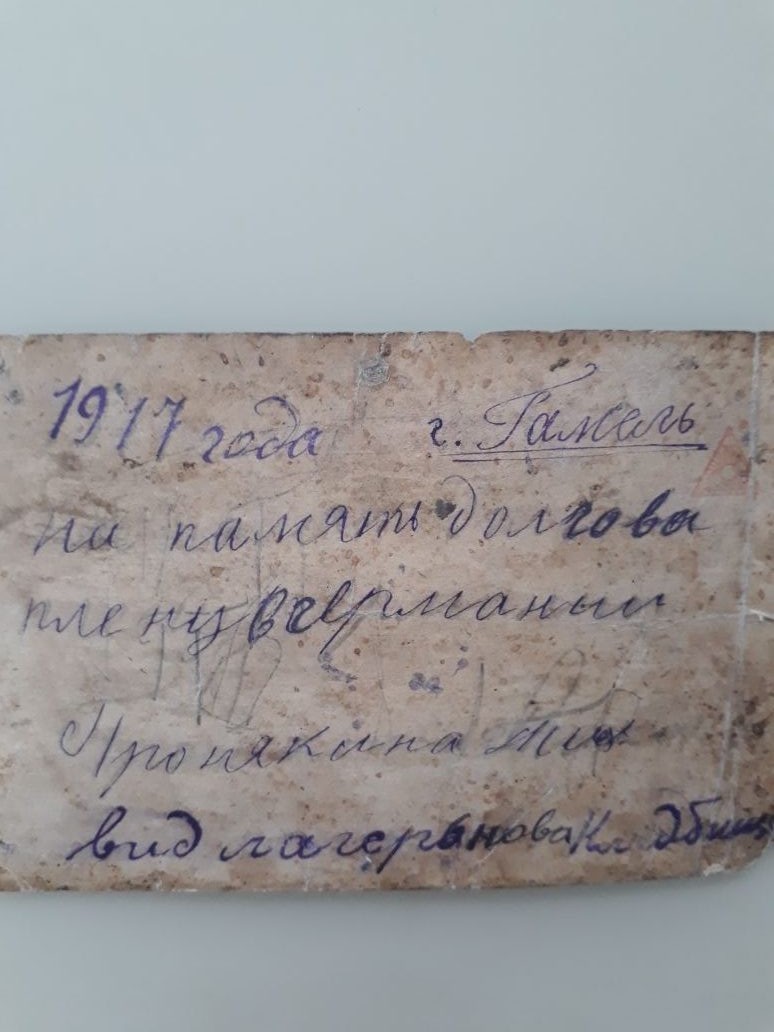 1917 года г. Гамель
на память долгова
плену в германии
Пронякина
вид лагерьнова Кладбищ